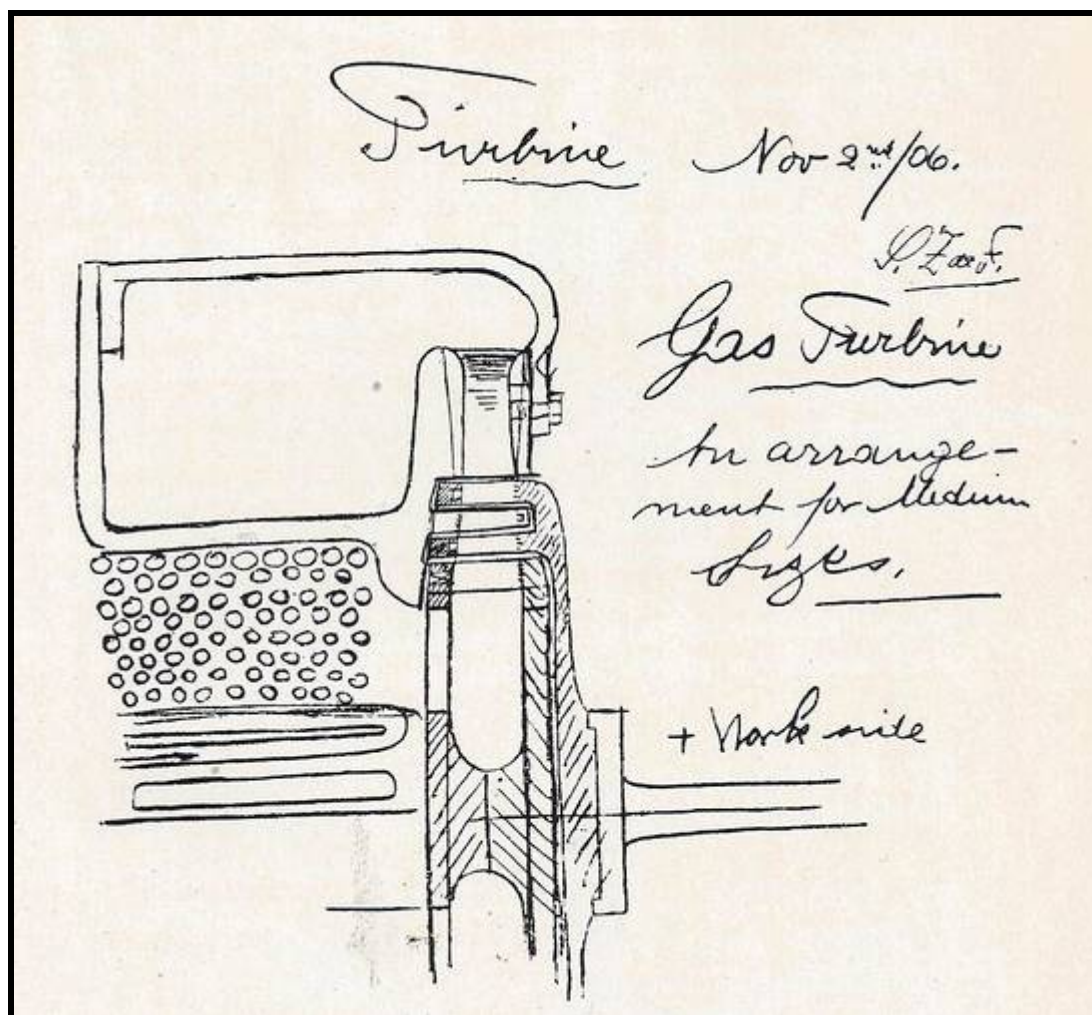 Turbine Nov 2nd/06.
S. Z de F.
Gas Turbine
An arrange-
ment for Medium
Sizes.
+ Work side